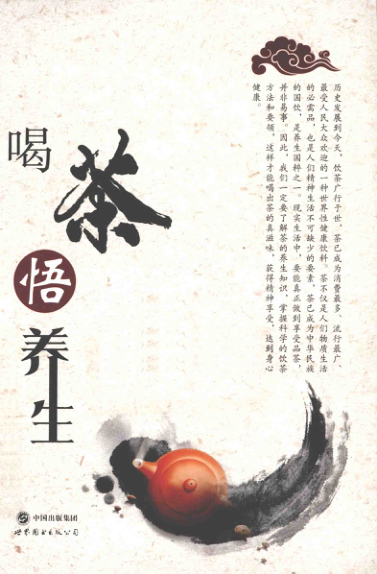 喝茶悟养生
历史发展到今天，饮茶广行于世，茶已成为消费最多、流行最广、
最受人民大众欢迎的一种世界性健康饮料。茶不仅是人们物质生活
的必需品，也是人们精神生活不可缺少的要素，茶已成为中华民族
的国饮，是养生国粹之一。现实生活中，要能真正做到享受品茶，
并非易事。因此，我们一定要了解茶的养生知识，掌握科学的饮茶
方法和要领，这样才能喝出茶的真滋味，获得精神享受，达到身心
健康。
中国出版集团
世界图书出版公司